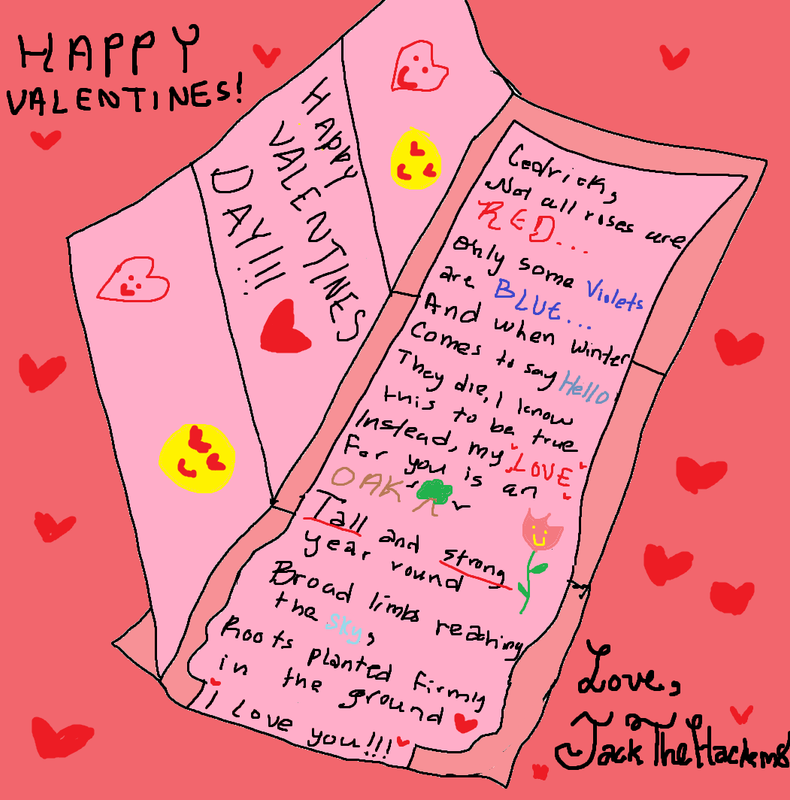 HAPPY
VALENTINES!
Happy
VALENTINES
DAY!!!
Cedrick,
Not all roses are
RED...
only some Violets
are BLUE...
And when winter
Comes to say Hello,
They die, I know
this to be true
Instead, my LOVE
For you is an
OAK
Tall and strong
year round
Broad limbs reaching
the sky,
Roots planted firmly
in the ground
I Love you!!!
Love,